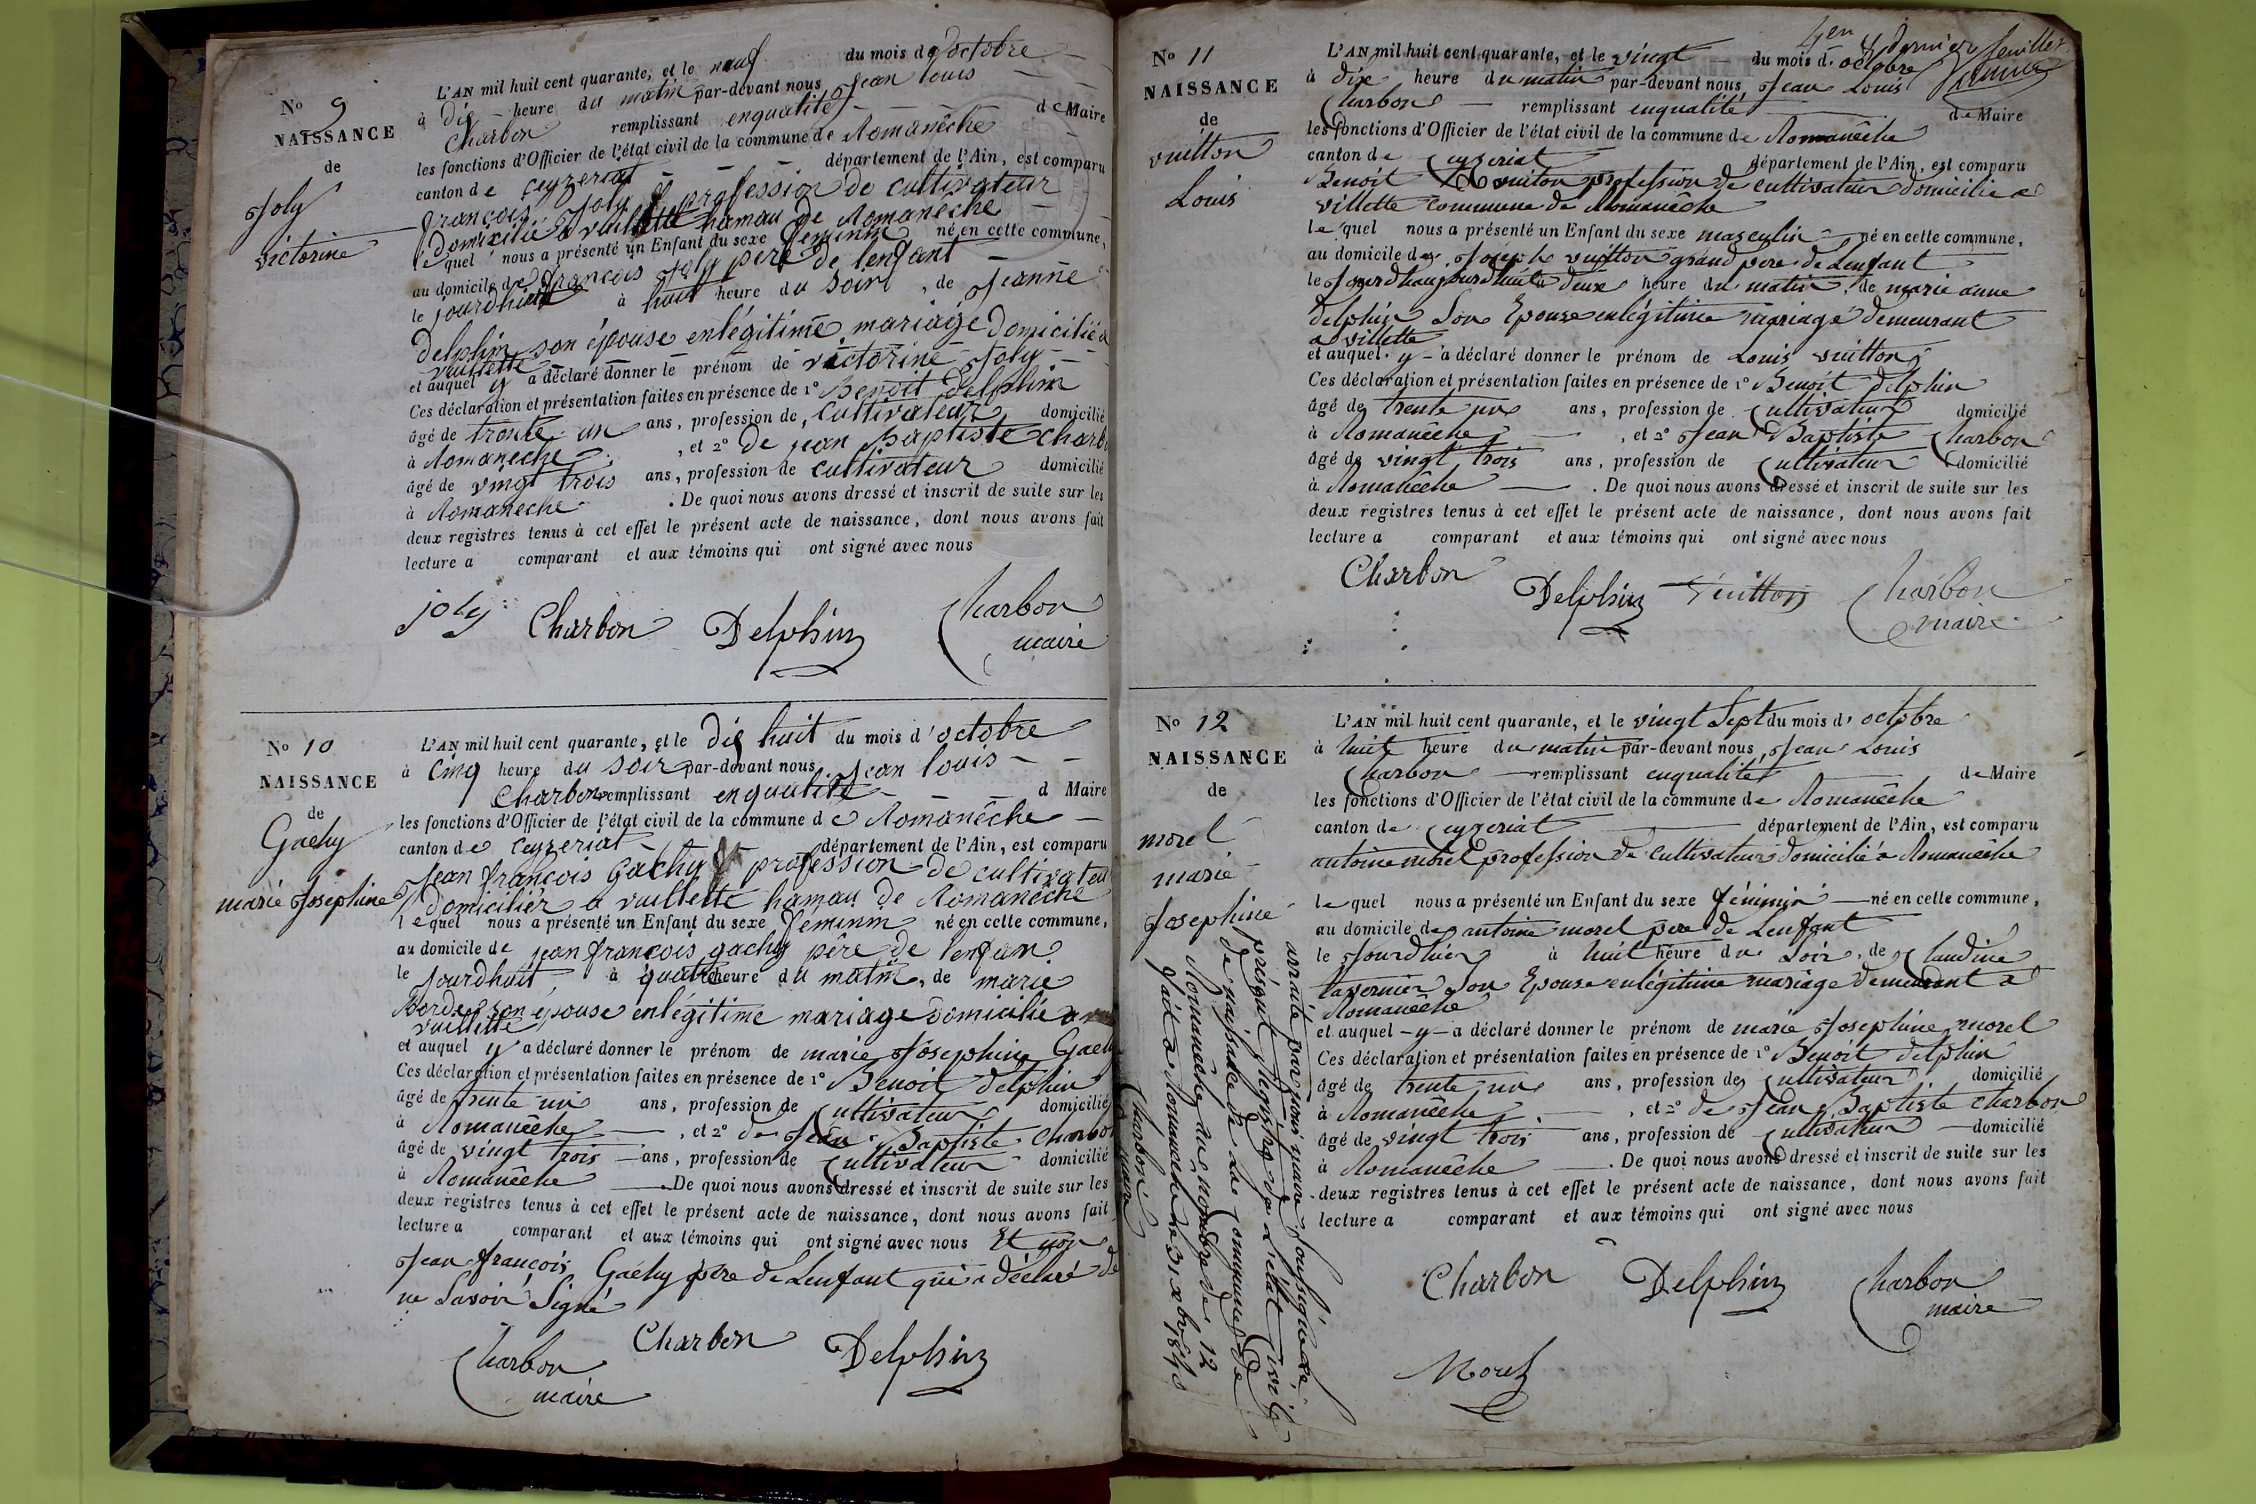 N° 9
NAISSANCE
de
Joly
victorine
L'AN mil huit cent quarante, et le neuf du mois d'octobre
à dix heure du matin par-devant nous Jean louis
Charbon remplissant enqualité de Maire
les fonctions d'Officier de l'état civil de la commune de Romanêche
canton de Ceyzeriat département de l'Ain, est comparu
françois Joly profession de cultivateur
domicilié a vuillette hamau de Romanêche
le quel nous a présenté un Enfant du sexe féminin né en cette commune,
au domicile de françois Joly père de lenfant
le jourdhui à huit heure du soir, de Jeanne
Delphin son épouse enlégitime mariage domicilié a
vuillette
et auquel y a déclaré donner le prénom de victorine Joly
Ces déclaration et présentation faites en présence de 1° Benoit Delphin
âgé de trente un ans, profession de Cultivateur domicilié
à Romaneche, et 2° de jean Baptiste charbon
âgé de vingt trois ans, profession de cultivateur domicilié
à Romaneche. De quoi nous avons dressé et inscrit de suite sur les
deux registres tenus à cet effet le présent acte de naissance, dont nous avons fait
lecture a comparant et aux témoins qui ont signé avec nous
joly Charbon Delphin Charbon
maire
N° 10
NAISSANCE
de
Gachy
marie Josephine
L'AN mil huit cent quarante, et le dix huit du mois d'octobre
à cinq heure du soir par-devant nous Jean louis
Charbon remplissant enqualité d Maire
les fonctions d'Officier de l'état civil de la commune de Romanêche
canton de Ceyzeriat département de l'Ain, est comparu
Jean françois Gachy profession de cultivateu
domicilier a vuillette hamau de Romanêche
le quel nous a présenté un Enfant du sexe féminin né en cette commune,
au domicile de jean françois gachy père de lenfan
le Jourdhuit à quatre heure du matin, de marie
son épouse enlégitime mariage domicilié a
vuillette
et auquel y a déclaré donner le prénom de marie Josephine Gachy
Ces déclaration et présentation faites en présence de 1° Benoit delphin
âgé de trente un ans, profession de Cultivateur domicilié
à Romanêche, et 2° de Jean Baptiste Charbon
âgé de vingt trois ans, profession de Cultivateur domicilié
à Romanêche. De quoi nous avons dressé et inscrit de suite sur les
deux registres tenus à cet effet le présent acte de naissance, dont nous avons fait
lecture a comparant et aux témoins qui ont signé avec nous Et non
Jean françois Gachy père de Lenfant qui a déclaré de
ne Savoir Signé
Charbon Charbon Delphin
maire
4en & dernier feuillet
N° 11
NAISSANCE
de
vuitton
Louis
L'AN mil huit cent quarante, et le vingt du mois d'octobre
à dix heure du matin par-devant nous Jean Louis
Charbon remplissant enqualité de Maire
les fonctions d'Officier de l'état civil de la commune de Romanêche
canton de Ceyzeriat département de l'Ain, est comparu
Benoit vuiton profession de cultivateur domicilié a
villette commune de Romanêche
le quel nous a présenté un Enfant du sexe masculin né en cette commune,
au domicile de Joseph vuitton grand père de Lenfant
le Jourdhaujourdhuit à deux heure du matin, de marie anne
delphin Son Epouse enlégitime mariage demeurant
a villette
et auquel y a déclaré donner le prénom de Louis vuitton
Ces déclaration et présentation faites en présence de 1° Benoit delphin
âgé de trente un ans, profession de Cultivateur domicilié
à Romanêche, et 2° Jean Baptiste Charbon
âgé de vingt trois ans, profession de Cultivateur domicilié
à Romanêche. De quoi nous avons dressé et inscrit de suite sur les
deux registres tenus à cet effet le présent acte de naissance, dont nous avons fait
lecture a comparant et aux témoins qui ont signé avec nous
Charbon Delphin Vuitton Charbon
maire
N° 12
NAISSANCE
de
morel
marie
Josephine
L'AN mil huit cent quarante, et le vingt Sept du mois d'octobre
à huit heure du matin par-devant nous Jean Louis
Charbon remplissant enqualité de Maire
les fonctions d'Officier de l'état civil de la commune de Romanêche
canton de Ceyzeriat département de l'Ain, est comparu
antoine morel profession de Cultivateur domicilié a Romanêche
le quel nous a présenté un Enfant du sexe féminin né en cette commune,
au domicile de antoine morel père de Lenfant
le Jourdhier à huit heure du Soir, de Claudine
tavernier Son Epouse enlégitime mariage demeurant a
Romanêche
et auquel y a déclaré donner le prénom de marie Josephine morel
Ces déclaration et présentation faites en présence de 1° Benoit delphin
âgé de trente un ans, profession de Cultivateur domicilié
à Romanêche, et 2° de Jean Baptiste Charbon
âgé de vingt trois ans, profession de Cultivateur domicilié
à Romanêche. De quoi nous avons dressé et inscrit de suite sur les
deux registres tenus à cet effet le présent acte de naissance, dont nous avons fait
lecture a comparant et aux témoins qui ont signé avec nous
Charbon Delphin Charbon
maire
Morel
arraité par nous maire Soussigné le
présent registre de L'état Civil
de naissance de La Commune de
Romanêche au nombre de 12
fait a Romanêche le 31 xbre 1840
Charbon
maire